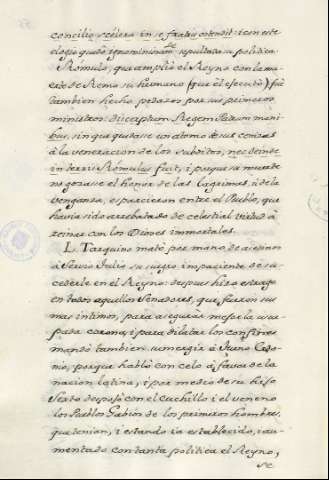 concilio, scelera in se fratru ostendit: i con este
elogio quedò ignominiosam.te sepultada su politica
Rómulo, que amplió el Reyno con la mu-
erte de Remo su hermano (que él executò) fuè
tambien hecho pedazos por sus primeros
ministros: discerptum Regem Patrum mani-
bus, sin que quedasse un atomo de sus cenizas
à la veneracion de los subditos, nec deinde
in terris Rómulus fuit, i porque su muerte
no gozasse el honor de las lagrimas, i de la
venganza, esparcieron entre el Pueblo, que
havia sido arrebatado de celestial virtud à
reinar con los Dioses immortales.
L. Tarquino matò por mano de asesinos
à Servio Tulio su suegro impaciente de su-
cederle en el Reyno: despues hizo estrago
en todos aquellos Senadores, que fueron sus
mas intimos, para asegurar mas la usur-
pada corona; i para dilatar los confines
mandò tambien sumergir à Turno
porque hablò con celo à favor de la
nacion latina, i por medio de su hijo
Sexto despojò con el cuchillo i el veneno
los Pueblos Gabios de los primeros hombres,
que tenian, i estando ia establecido, i au-
mentado con tanta politica el Reyno,
se